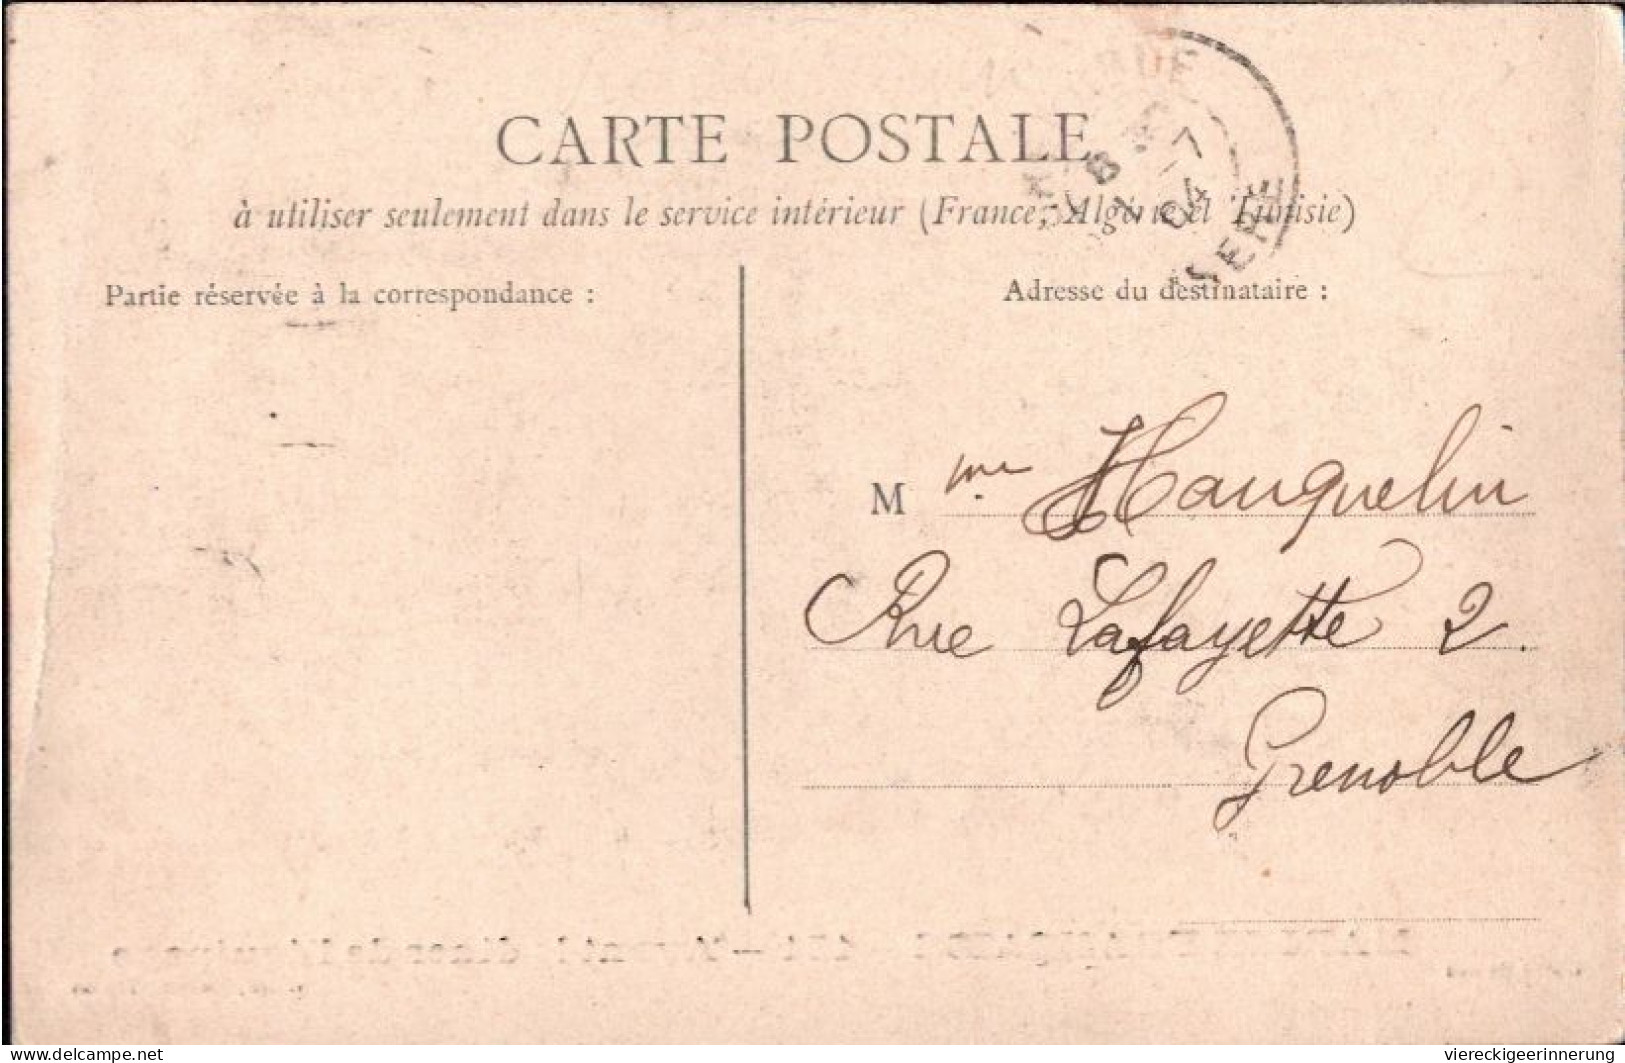 CARTE POSTALE
à utiliser seulement dans le service intérieur (France, Algérie et Tunisie)
Partie réservée à la correspondance :
Adresse du destinataire :
8
-7
04
ISERE
M me Hauquelin
Rue Lafayette 2.
Grenoble
www.delcampe.net
viereckigeerinnerung